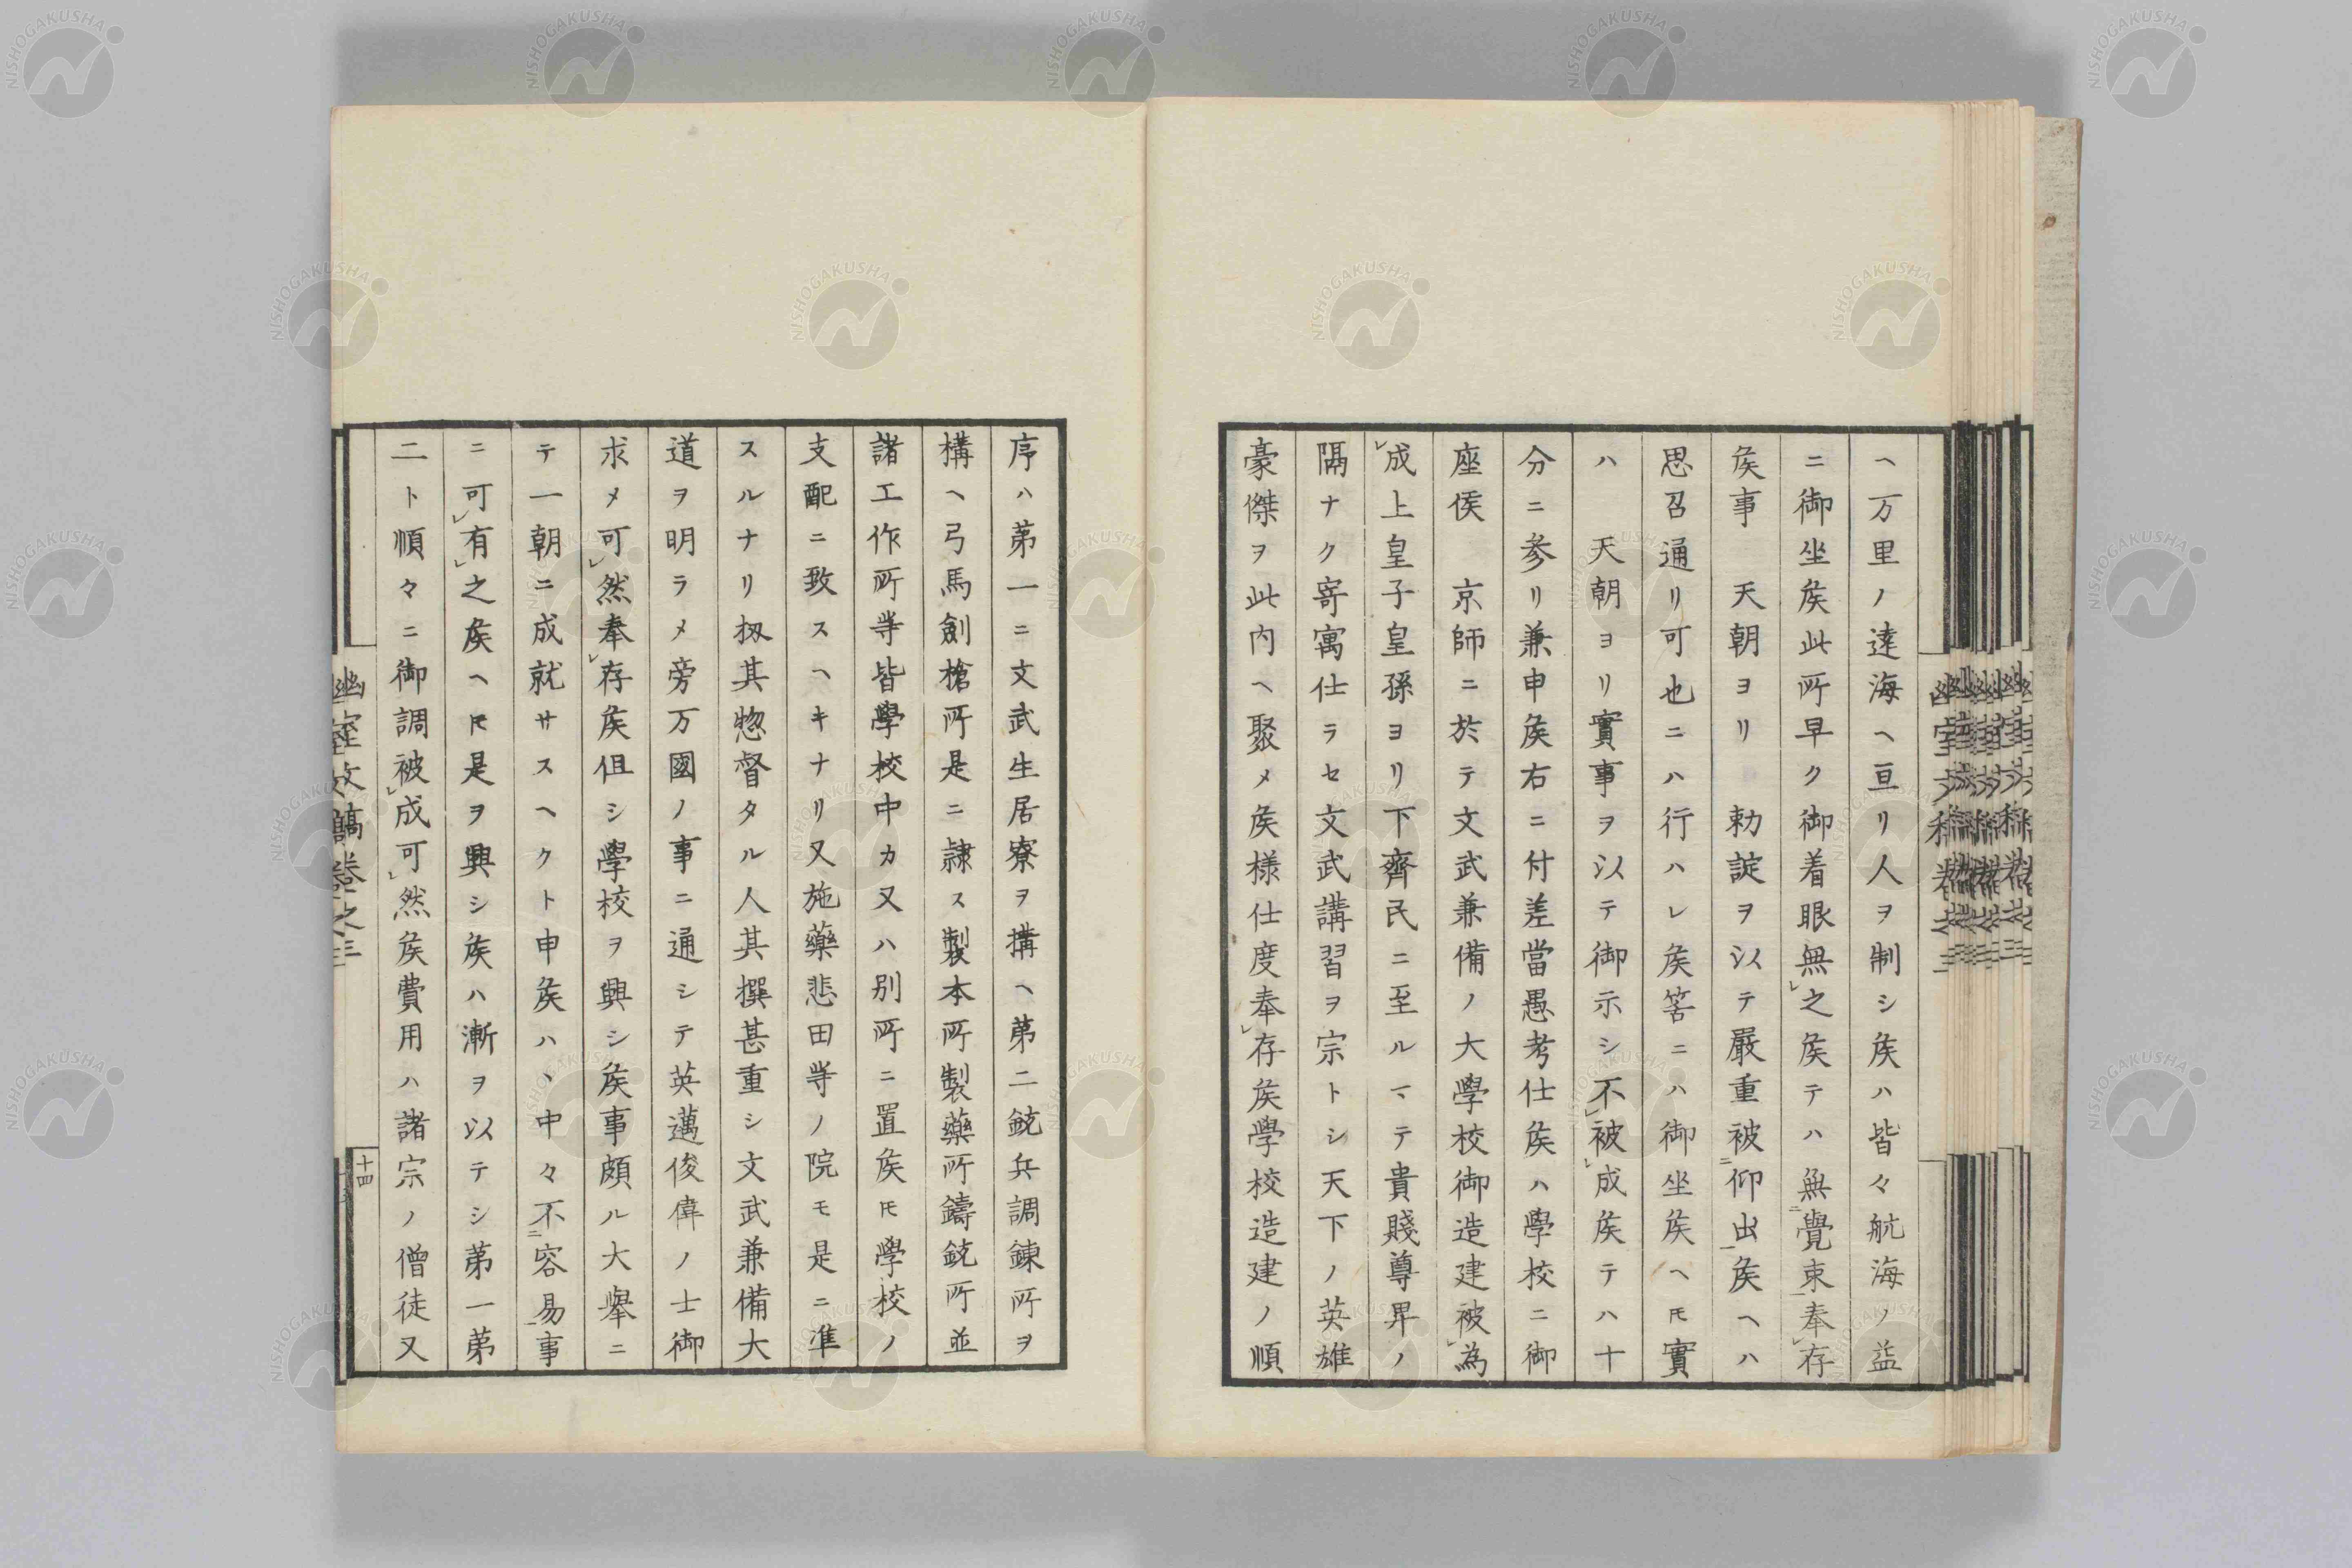 ヘ万里ノ逹海ヘ亘リ人ヲ制シ矦ハ皆々航海ノ益
ニ御坐矦此所早ク御着眼無レ之矦テハ無二覺束一奉レ存
矦事　天朝ヨリ　勅諚ヲ以テ嚴重被二仰出一矦ヘハ
思召通リ可也ニハ行ハレ矦筈ニハ御坐矦ヘ㆑実
ハ　天朝ヨリ實事ヲ以テ御示シ不レ被レ成矦テハ十
分ニ参リ兼申矦右ニ付差當愚考仕矦ハ學校ニ御
座侯　京師ニ於テ文武兼備ノ大學校御造建被レ為
レ成上皇子皇孫ヨリ下齊民ニ至ルマテ貴賤尊卑ノ
隔ナク寄寓仕ラセ文武講習ヲ宗トシ天下ノ英雄
豪傑ヲ此内ヘ聚メ矦様仕度奉レ存矦學校造建ノ順
序ハ第一ニ文武生居寮ヲ搆ヘ第二銃兵調錬所ヲ
構ヘ弓馬劍槍所是ニ隷ス製本所製藥所鑄銃所並
諸工作所等皆學校中カ又ハ別所ニ置矦𪜈學校ノ
支配ニ致スヘキナリ又施藥悲田等ノ院モ是ニ凖
スルナリ扨其惣督タル人其撰甚重シ文武兼備大
道ヲ明ラメ旁万國ノ事ニ通シテ英邁俊偉ノ士御
求メ可レ然奉レ存矦但シ學校ヲ興シ矦事頗ル大擧ニ
テ一朝ニ成就サスヘクト申矦ハヽ中々不二容易一事
ニ可レ有レ之矦ヘ𪜈是ヲ興シ矦ハ漸ヲ以テシ第一第
二ト順々ニ御調被レ成可レ然矦費用ハ諸宗ノ僧徒又
幽室文稿卷之三
十四